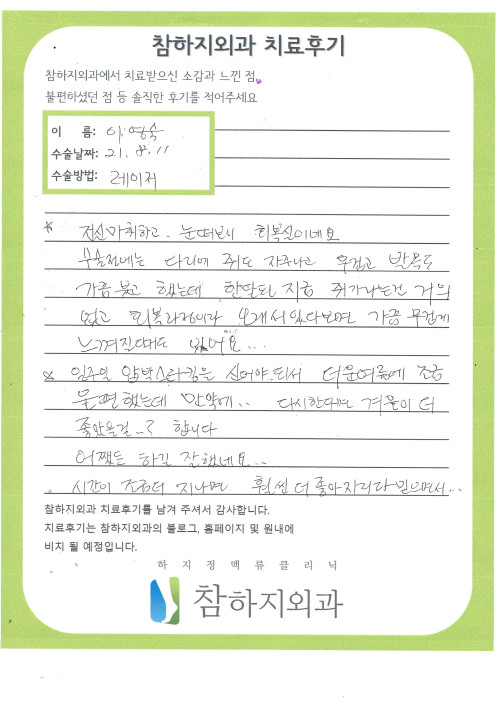 참하지외과 치료후기
참하지외과에서 치료받으신 소감과 느낀 점,
불편하셨던 점 등 솔직한 후기를 적어주세요
이 름: 이영숙
수술날짜: 21. 8. 11
수술방법: 레이저
* 전신마취하고. 눈떠보니 회복실이네요
수술전에는 다리에 쥐도 자주나고 무겁고 발목도
가끔 붓고 했는데 한달된 지금 쥐가나는건 거의
없고 회복과정이라 오래서있다보면 가끔 무겁게
느껴진다해도 있어요...
* 일주일 압박스타킹을 신어야되서 더운여름에 조금
불편했는데 만약에.. 다시한대도 겨울이 더
좋았을걸..? 합니다
어쨌든 하길 잘했네요..
시간이 조금더 지나면 훨씬 더 좋아지리라 믿으면서...
참하지외과 치료후기를 남겨 주셔서 감사합니다.
치료후기는 참하지외과의 블로그, 홈페이지 및 원내에
비치 될 예정입니다.
하지정맥류클리닉
참하지외과